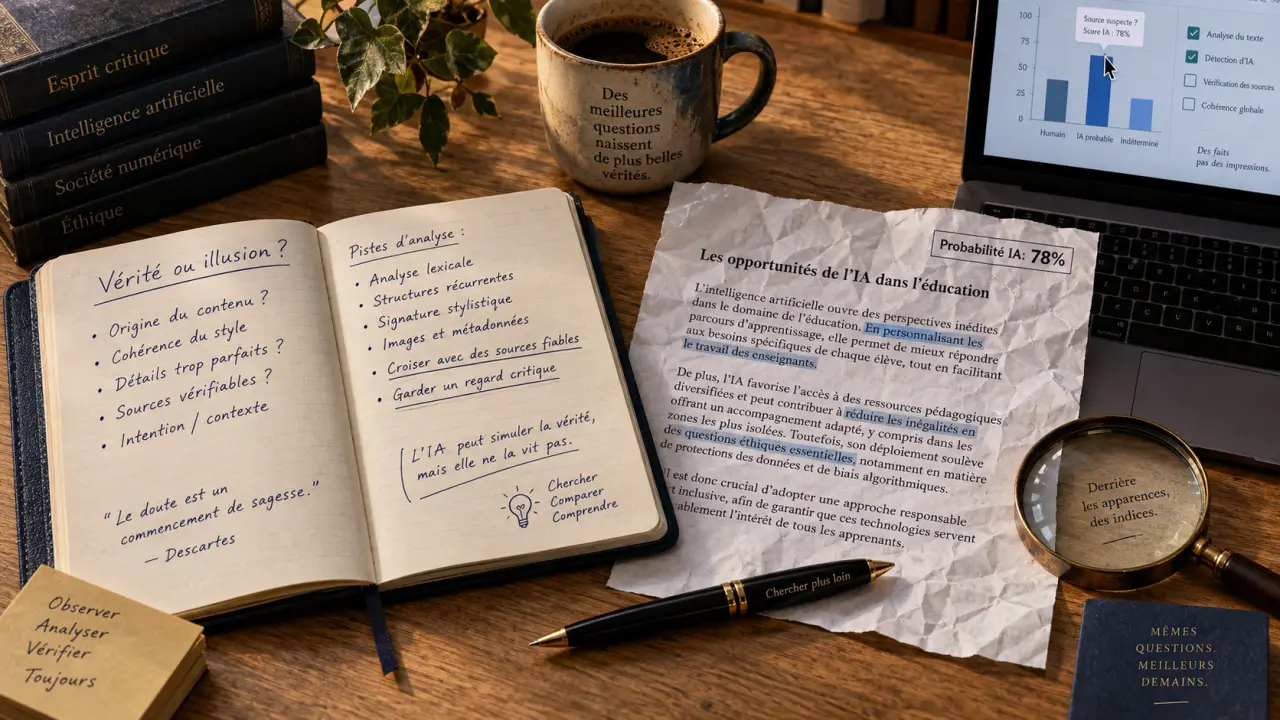 Esprit critique
Intelligence artificielle
Société numérique
Éthique
Des
meilleures
questions
naissent
de plus belles
vérités.
100
75
50
25
0
Source suspecte ?
Score IA : 78%
Humain
IA probable
Indéterminé
Analyse du texte
Détection d'IA
Vérification des sources
Cohérence globale
Des faits
pas des impressions.
Vérité ou illusion ?
• Origine du contenu ?
• Cohérence du style
• Détails trop parfaits ?
• Sources vérifiables ?
• Intention / contexte
“Le doute est un
commencement de sagesse.”
— Descartes
Pistes d'analyse :
• Analyse lexicale
• Structures récurrentes
• Signature stylistique
• Images et métadonnées
• Croiser avec des sources fiables
• Garder un regard critique
L'IA peut simuler la vérité,
mais elle ne la vit pas.
Chercher
Comparer
Comprendre
Probabilité IA: 78%
Les opportunités de l'IA dans l'éducation
L'intelligence artificielle ouvre des perspectives inédites
dans le domaine de l'éducation. En personnalisant les
parcours d'apprentissage, elle permet de mieux répondre
aux besoins spécifiques de chaque élève, tout en facilitant
le travail des enseignants.
De plus, l'IA favorise l'accès à des ressources pédagogiques
diversifiées et peut contribuer à réduire les inégalités en
offrant un accompagnement adapté, y compris dans les
zones les plus isolées. Toutefois, son déploiement soulève
des questions éthiques essentielles, notamment en matière
de protections des données et de biais algorithmiques.
Il est donc crucial d'adopter une approche responsable
et inclusive, afin de garantir que ces technologies servent
l'intérêt de tous les apprenants.
Chercher plus loin
Derrière
les apparences,
des indices.
Observer
Analyser
Vérifier
Toujours
MÊMES
QUESTIONS.
MEILLEURS
DEMAINS.